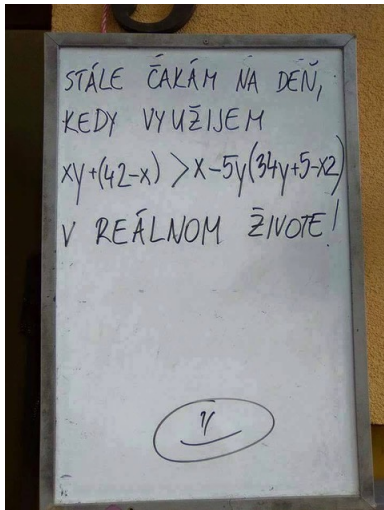 STÁLE ČAKÁM NA DEŇ,
KEDY VYUŽIJEM
xy+(42-x) > x-5y(34y+5-x2)
V REÁLNOM ŽIVOTE!